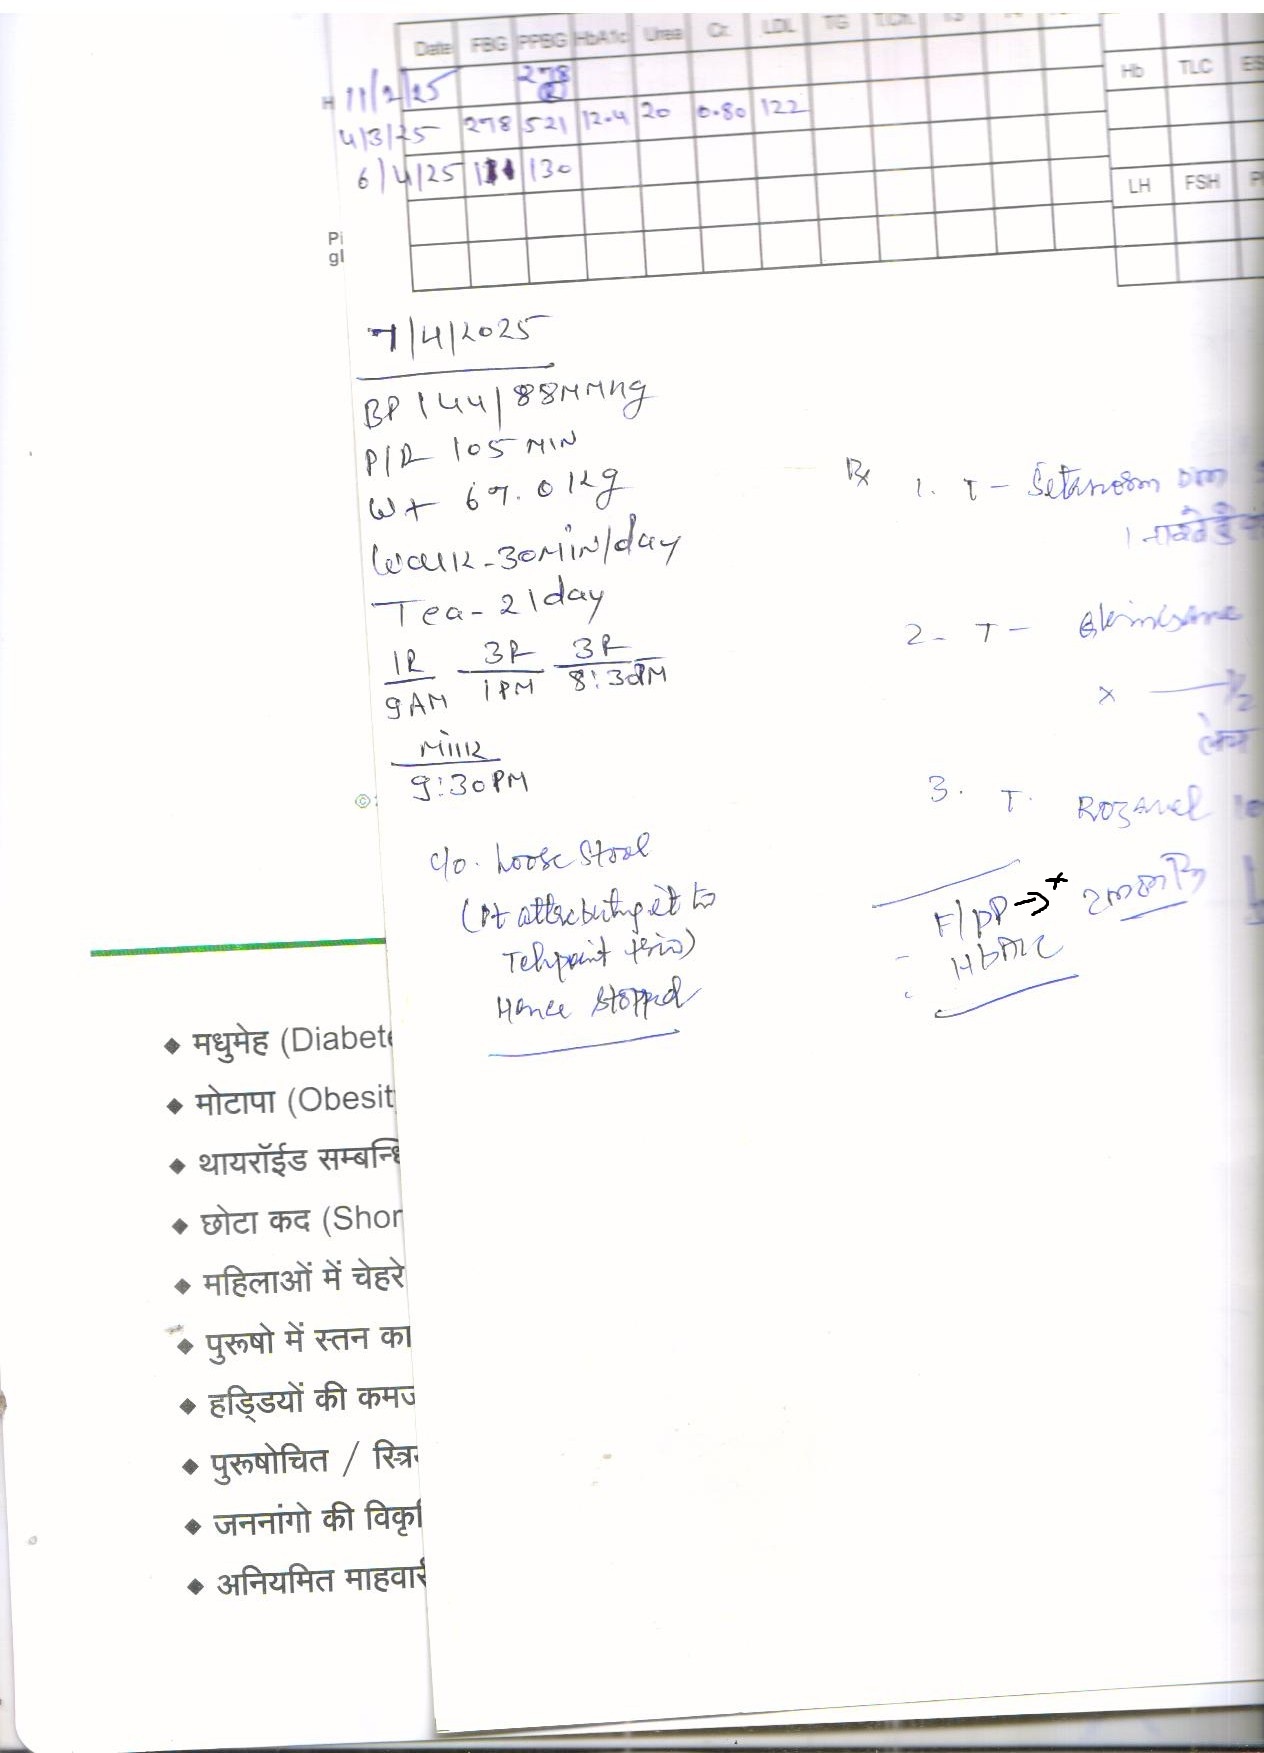 Date FBG PPBG HbA1c Urea Cr. LDL TG T.Ch.
Hb TLC ES
H 11/2/25 278 (R)
4/3/25 278 521 12.4 20 0.80 122
6/4/25 130
LH FSH
Pi
gl
7/4/2025
BP 144/88MMHg
P/R 105 MIN
Wt 67.0 Kg
Walk-30MIN/day
Tea-2/day
1R 3R 3R
9AM 1PM 8:30PM
Milk
9:30PM
Rx 1. T-
2- T-
x 1/2
3. T. 10
c/o. Loose Stool
(Pt attributing it to
Hence Stopped
F/PP → 2 month
HbA1c
©
◆ मधुमेह (Diabete
◆ मोटापा (Obesit
◆ थायरॉईड सम्बन्धि
◆ छोटा कद (Shor
◆ महिलाओं में चेहरे
◆ पुरूषो में स्तन का
◆ हड्डियों की कमज
◆ पुरूषोचित / स्त्रि
◆ जननांगो की विकृति
◆ अनियमित माहवारी